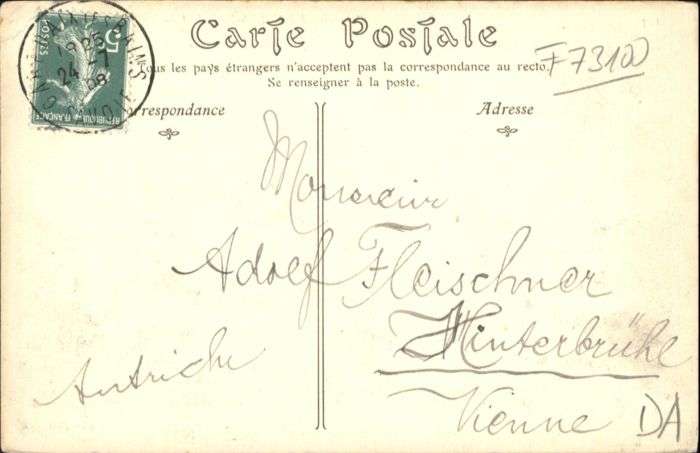 Carte Postale
Tous les pays étrangers n'acceptent pas la correspondance au recto.
Se renseigner à la poste.
Correspondance
Adresse
F73100
5c
POSTES
REPUBLIQUE FRANÇAISE
AIX-LES-BAINS
9 25
24 -7
08
SAVOIE
Monsieur
Adolf Fleischner
Hinterbrühl
Vienne
Autriche
DA